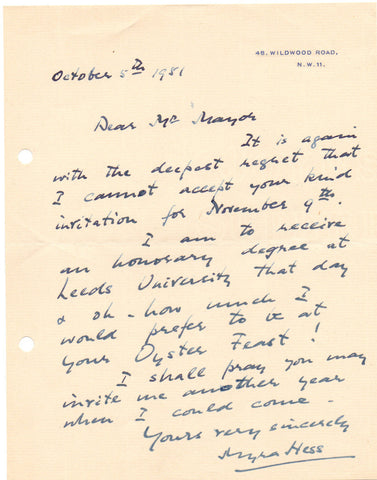 48, WILDWOOD ROAD,
N.W.11.
October 5th 1951
Dear Mr Mayor
It is again
with the deepest regret that
I cannot accept your kind
invitation for November 9th.
I am to receive
an honorary degree at
Leeds University that day
& oh - how much I
would prefer to be at
your Oyster Feast!
I shall pray you may
invite me another year
when I could come -
Yours very sincerely
Myra Hess